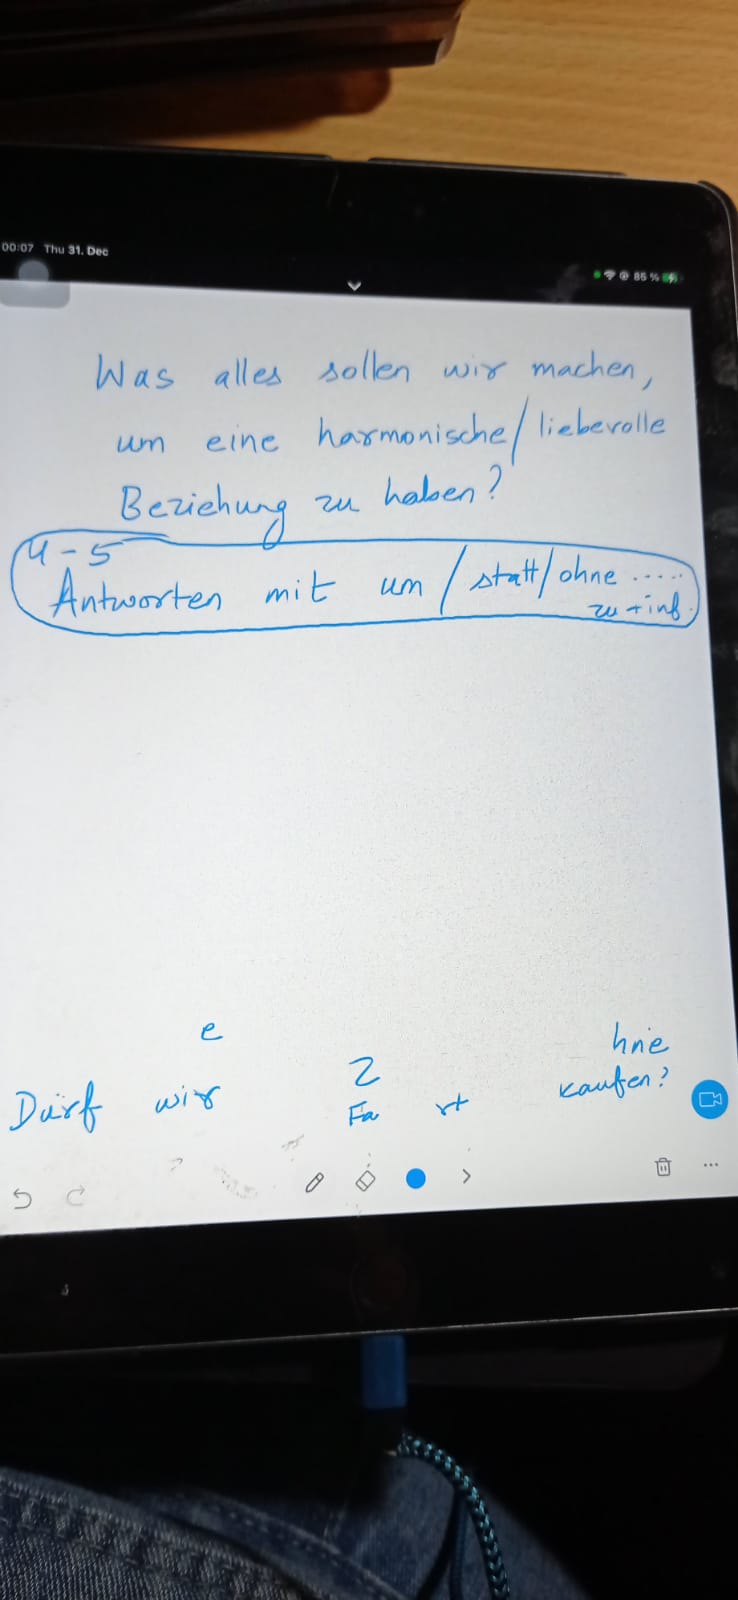 00:07 Thu 31. Dec
85 %
Was alles sollen wir machen,
um eine harmonische/liebevolle
Beziehung zu haben?
4-5
Antworten mit um / statt/ohne .....
zu + inf.
e
hne
2
Darf wir Fa rt kaufen?